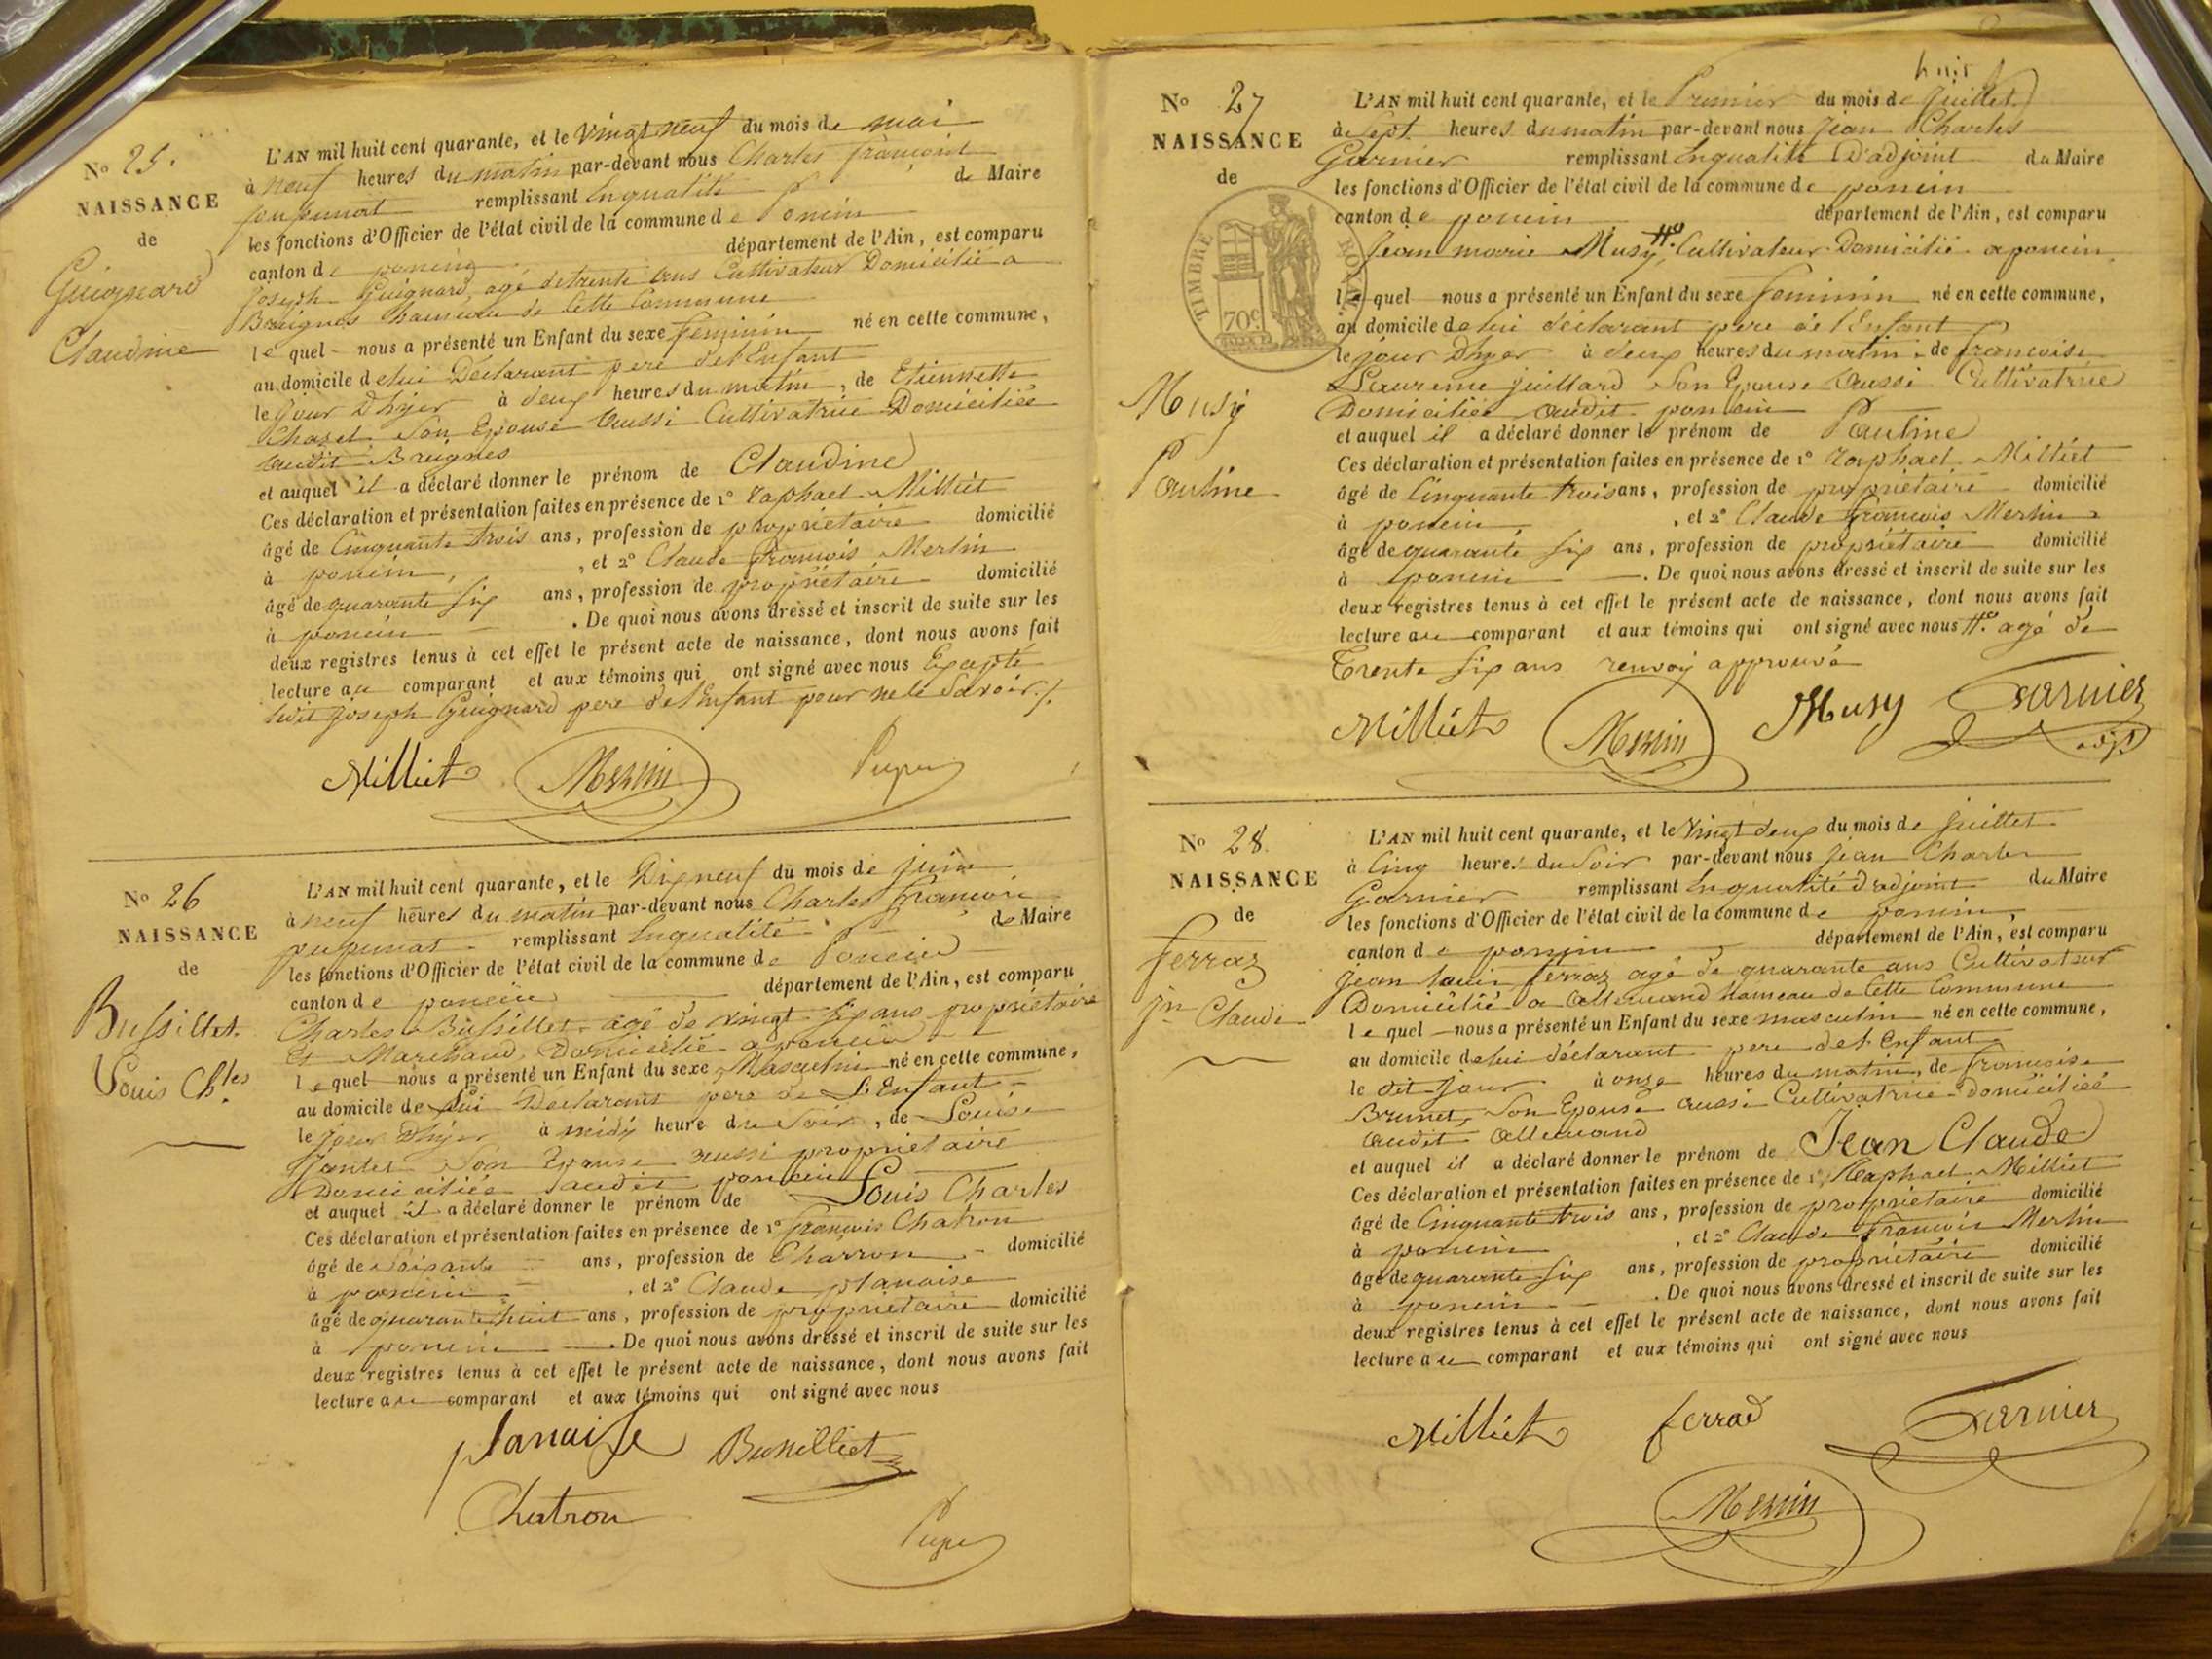 N° 25.
NAISSANCE
de
Guignard
Claudine
L'AN mil huit cent quarante, et le vingt neuf du mois de mai
à neuf heures du matin par-devant nous Charles françois
pupunat remplissant En qualité de Maire
les fonctions d'Officier de l'état civil de la commune de Poncin
canton de poncin département de l'Ain, est comparu
Joseph Guignard, agé de trente ans Cultivateur Domicilié a
Breignes hameau de Cette Commune
lequel nous a présenté un Enfant du sexe feminin né en cette commune,
au domicile de lui Déclarant pere de l'Enfant
le jour D'hyer à deux heures du matin, de Etiennette
Chazel Son Epouse aussi Cultivatrice Domiciliée
audit Breignes
et auquel il a déclaré donner le prénom de Claudine
Ces déclaration et présentation faites en présence de 1° raphael Milliet
âgé de Cinquante trois ans, profession de propriétaire domicilié
à poncin, , et 2° Claude François Merlin
âgé de quarante six ans, profession de propriétaire domicilié
à poncin . De quoi nous avons dressé et inscrit de suite sur les
deux registres tenus à cet effet le présent acte de naissance, dont nous avons fait
lecture au comparant et aux témoins qui ont signé avec nous Excepté
ledit joseph Guignard pere de l'Enfant pour ne le Savoir./.
Milliet Merlin Pupu
N° 26
NAISSANCE
de
Bussillet
Louis Ch.les
L'AN mil huit cent quarante, et le Dix neuf du mois de juin
à neuf heures du matin par-devant nous Charles François
pupunat remplissant En qualité de Maire
les fonctions d'Officier de l'état civil de la commune de Poncin
canton de poncin département de l'Ain, est comparu
Charles Bussillet, agé de vingt six ans propriétaire
Et Marchand, Domicilié a poncin
lequel nous a présenté un Enfant du sexe Masculin né en cette commune,
au domicile de Lui Déclarant pere de L'Enfant
le jour D'hyer à midy heure du Soir, de Louise
Jantet Son Epouse aussi propriétaire
Domiciliée audit poncin
et auquel il a déclaré donner le prénom de Louis Charles
Ces déclaration et présentation faites en présence de 1° françois Chatron
âgé de Soixante ans, profession de Charron domicilié
à poncin , et 2° Claude planaise
âgé de quarante huit ans, profession de propriétaire domicilié
à poncin . De quoi nous avons dressé et inscrit de suite sur les
deux registres tenus à cet effet le présent acte de naissance, dont nous avons fait
lecture au comparant et aux témoins qui ont signé avec nous
planaise Bussilliet
Chatron Pupu
N° 27
NAISSANCE
de
TIMBRE ROYAL
70c
Musy
Pauline
huit
L'AN mil huit cent quarante, et le Premier du mois de Juillet
à Sept heures du matin par-devant nous Jean Charles
Garnier remplissant En qualité D'adjoint du Maire
les fonctions d'Officier de l'état civil de la commune de poncin
canton de poncin département de l'Ain, est comparu
Jean marie Musy, Cultivateur Domicilié a poncin
lequel nous a présenté un Enfant du sexe feminin né en cette commune,
au domicile de lui déclarant pere de l'Enfant
le jour D'hyer à deux heures du matin, de françoise
Laurence juillard Son Epouse aussi Cultivatrice
Domiciliée audit poncin
et auquel il a déclaré donner le prénom de Pauline
Ces déclaration et présentation faites en présence de 1° raphael Milliet
âgé de Cinquante trois ans, profession de propriétaire domicilié
à poncin, , et 2° Claude françois Merlin
âgé de quarante six ans, profession de propriétaire domicilié
à poncin . De quoi nous avons dressé et inscrit de suite sur les
deux registres tenus à cet effet le présent acte de naissance, dont nous avons fait
lecture au comparant et aux témoins qui ont signé avec nous agé de
Trente six ans renvoy approuvé
Milliet Merlin Musy Garnier
N° 28.
NAISSANCE
de
ferraz
jn Claude
L'AN mil huit cent quarante, et le Vingt deux du mois de juillet
à Cinq heures du Soir par-devant nous Jean Charles
Garnier remplissant En qualité D'adjoint du Maire
les fonctions d'Officier de l'état civil de la commune de poncin,
canton de poncin département de l'Ain, est comparu
jean louis ferraz agé de quarante ans Cultivateur
Domicilié a allemand hameau de Cette Commune
lequel nous a présenté un Enfant du sexe masculin né en cette commune,
au domicile de lui déclarant pere de l'Enfant
le dit jour à onze heures du matin, de françoise
Brunet, Son Epouse aussi Cultivatrice Domiciliée
audit allemand
et auquel il a déclaré donner le prénom de Jean Claude
Ces déclaration et présentation faites en présence de 1° Raphael Milliet
âgé de Cinquante trois ans, profession de propriétaire domicilié
à poncin , et 2° Claude François Merlin
âgé de quarante six ans, profession de propriétaire domicilié
à poncin . De quoi nous avons dressé et inscrit de suite sur les
deux registres tenus à cet effet le présent acte de naissance, dont nous avons fait
lecture au comparant et aux témoins qui ont signé avec nous
Milliet ferraz Garnier
Merlin